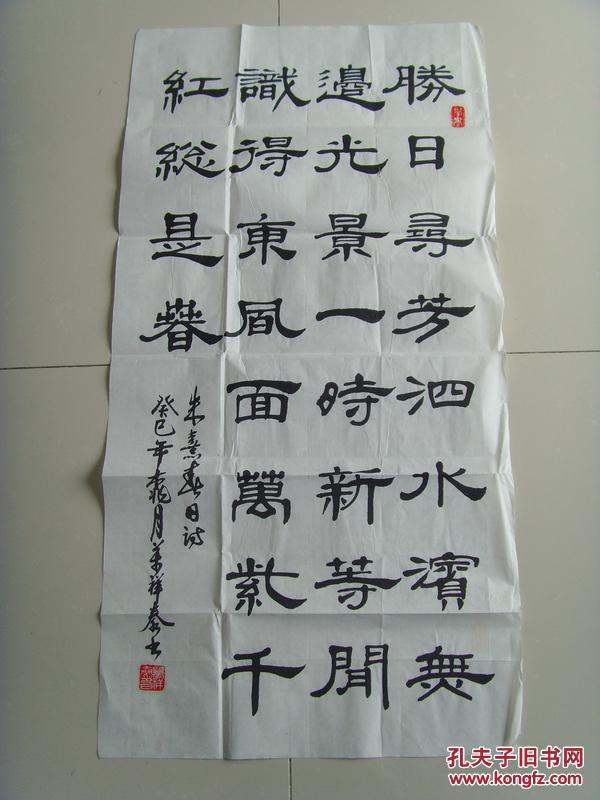 勝日尋芳泗水濱無
邊光景一時新等閒
識得東風面萬紫千
紅総是春
朱熹春日诗
癸巳年桃月祥泰书
孔夫子旧书网
www.kongfz.com